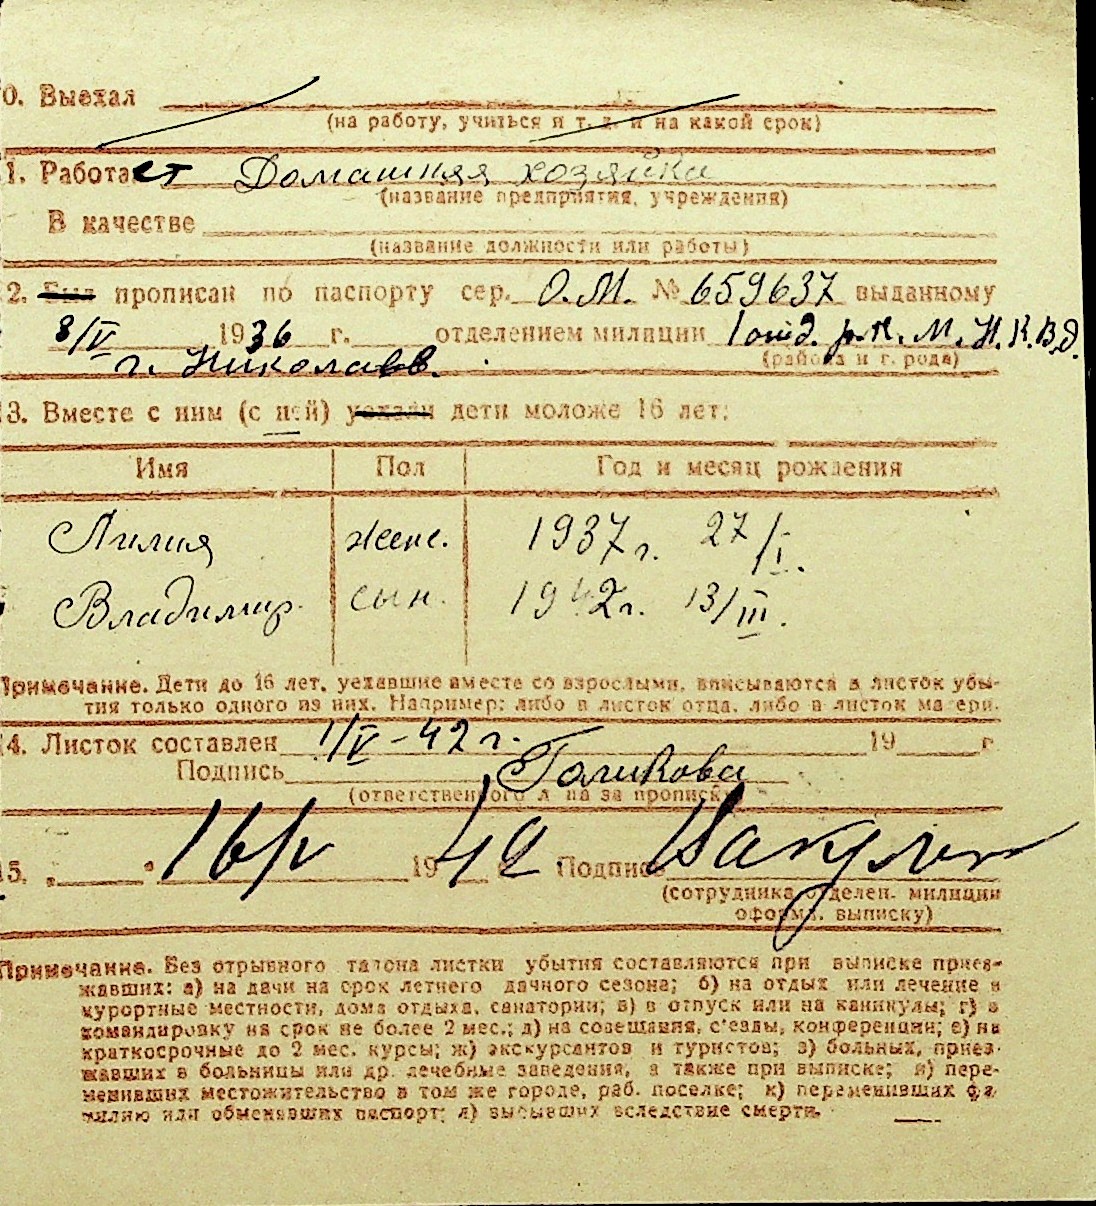 0. Выехал
(на работу, учиться и т. д. и на какой срок)
1. Работает Домашняя хозяйка
(название предприятия, учреждения)
В качестве
(название должности или работы)
2. Был прописан по паспорту сер. О.М. № 659637 выданному
8/IV 1936 г. отделением милиции 1 отд. р.к. М. Н.К.В.д.
(района и города)
г. Николаев.
3. Вместе с ним (с ней) уехали дети моложе 16 лет:
Имя Пол Год и месяц рождения
Лилия женс. 1937 г. 27/I.
Владимир. сын. 1942 г. 13/III.
Примечание. Дети до 16 лет, уехавшие вместе со взрослыми, вписываются в листок убы-
тия только одного из них. Например: либо в листок отца, либо в листок матери.
4. Листок составлен 1/V-42 г. 19 г.
Подпись Голикова
(ответственного лица за прописку)
5. „ “ 16/V 1942 г. Подпись
(сотрудника отделен. милиции
оформ. выписку)
Примечание. Без отрывного талона листки убытия составляются при выписке приез-
жавших: а) на дачи на срок летнего дачного сезона; б) на отдых или лечение в
курортные местности, дома отдыха, санатории; в) в отпуск или на каникулы; г) в
командировку на срок не более 2 мес.; д) на совещания, с'езды, конференции; е) на
краткосрочные до 2 мес. курсы; ж) экскурсантов и туристов; з) больных, приез-
жавших в больницы или др. лечебные заведения, а также при выписке; и) пере-
менивших местожительство в том же городе, раб. поселке; к) переменивших фа-
милию или обменявших паспорт; л) выбывших вследствие смерти.